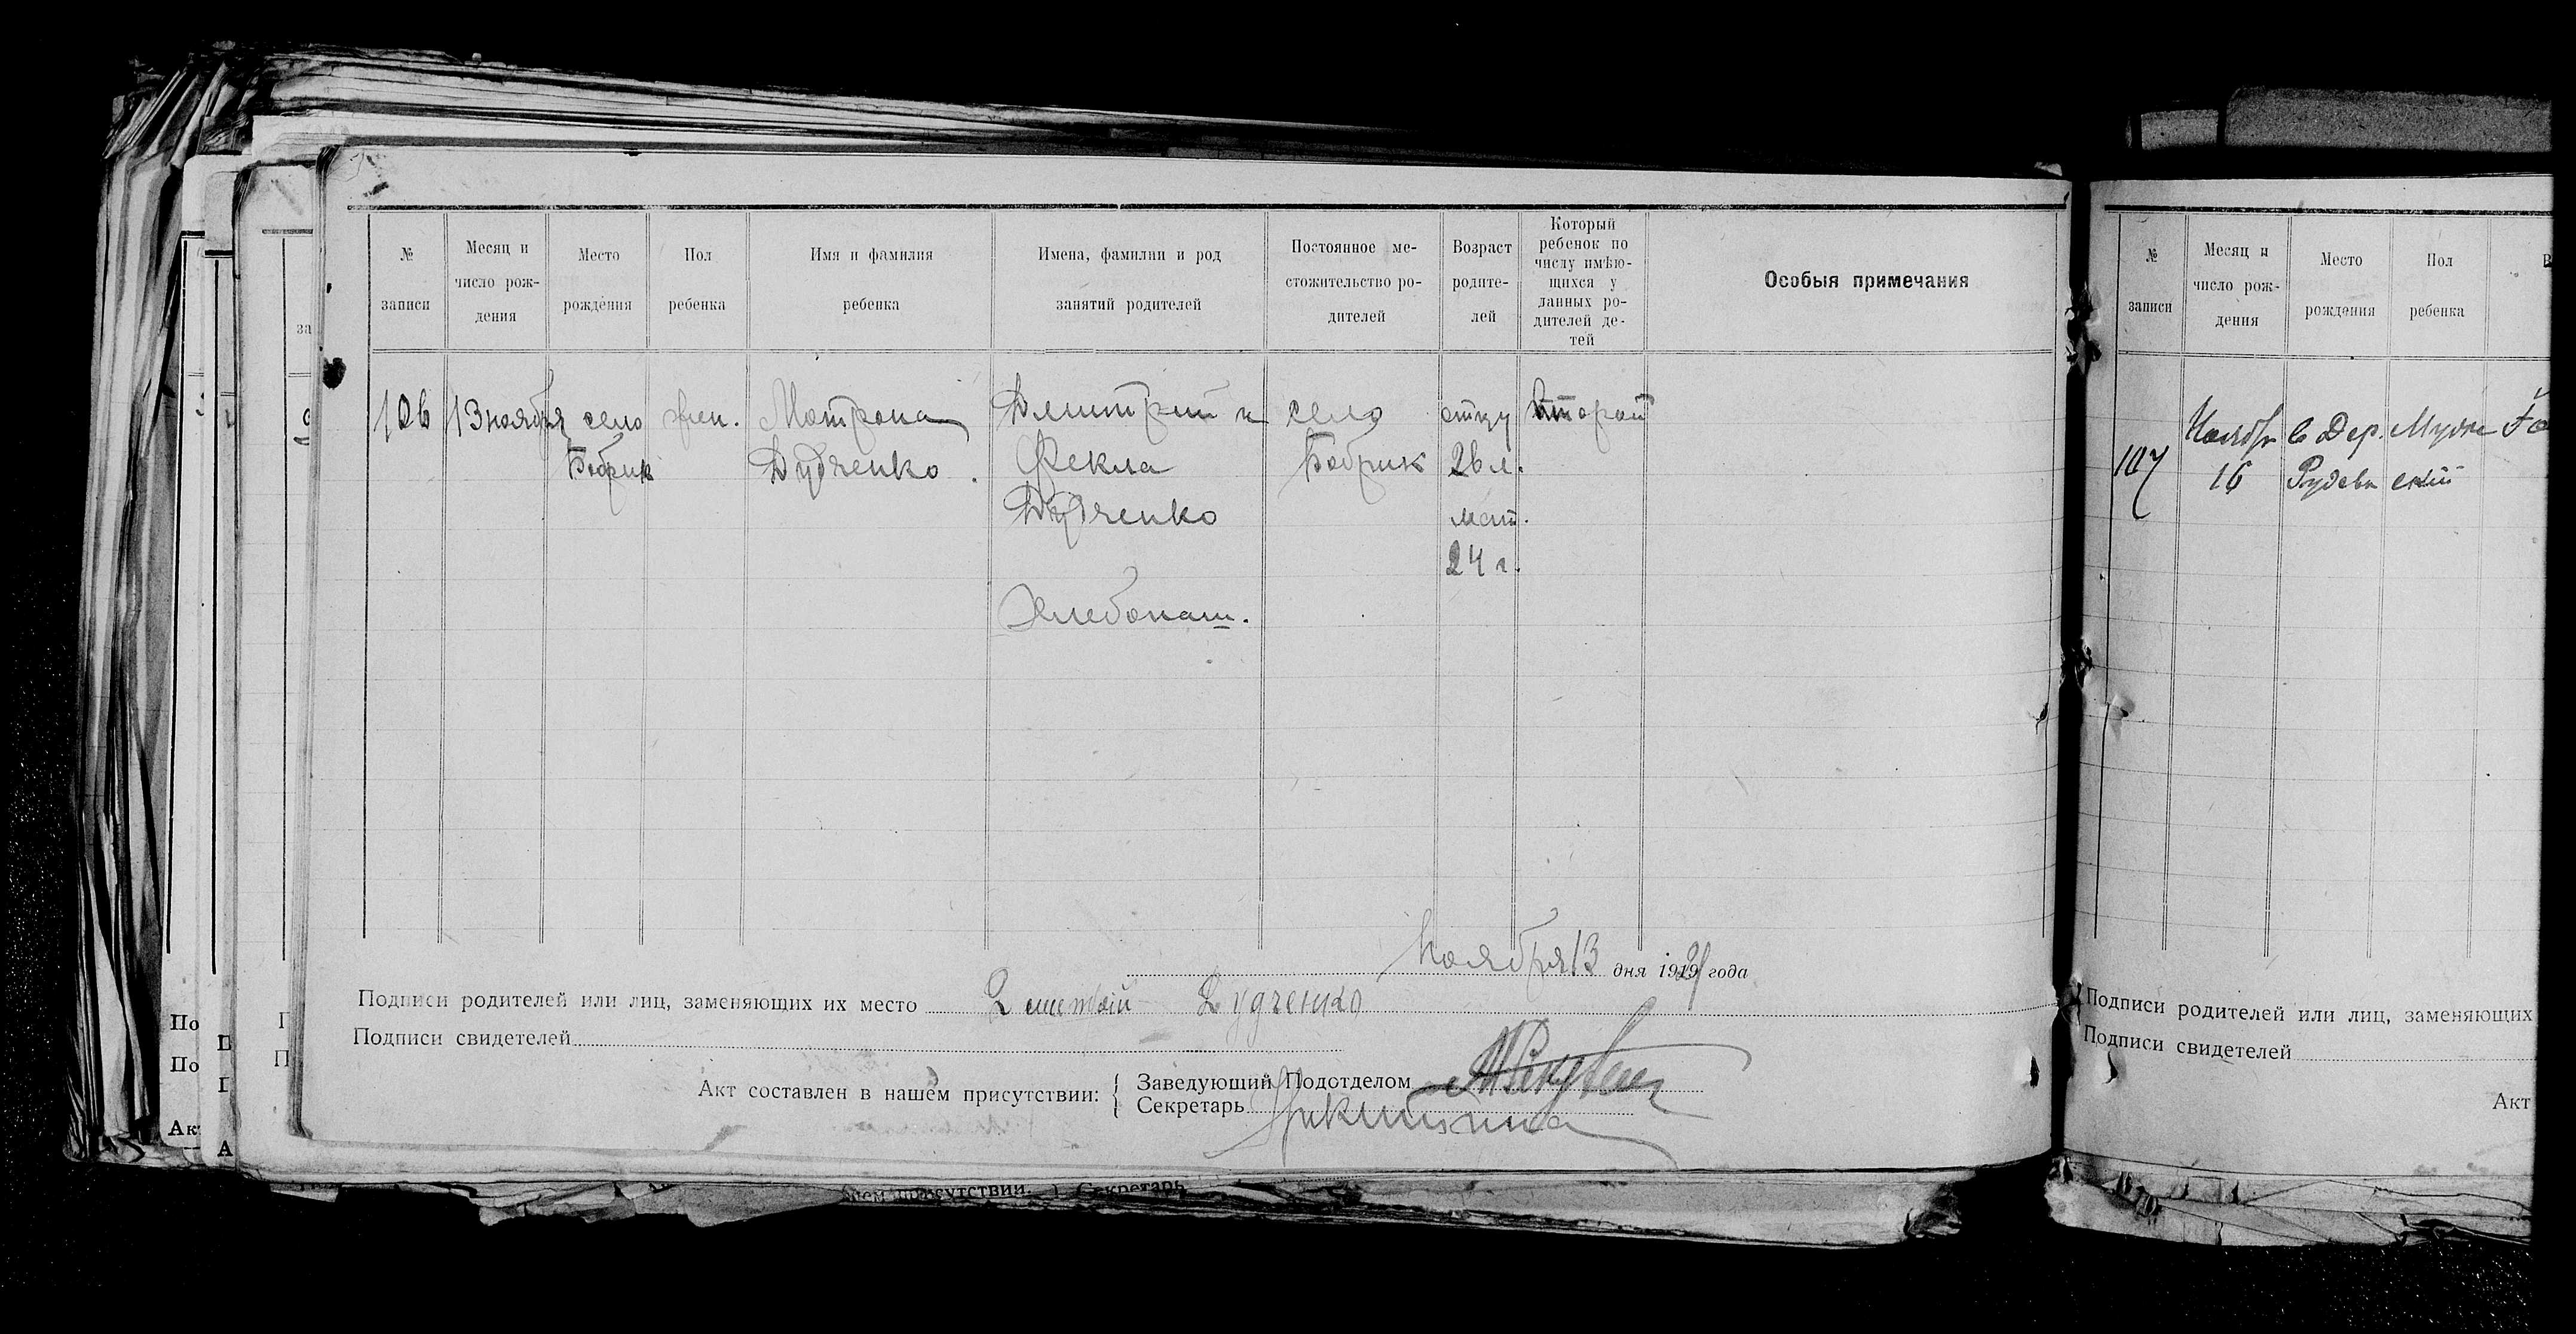 № записи
Месяц и число рож-дения
Место рождения
Пол ребенка
Имя и фамилия ребенка
Имена, фамилии и род занятий родителей
Постоянное ме-стожительство ро-дителей
Возраст родите-лей
Который ребенок по числу имѣю-щихся у данных ро-дителей де-тей
Особыя примечания
106 13 ноября село жен. Матрона Дмитрий и село отцу второй
Бобрик Дудченко. Фекла Бобрик 26 л.
Дудченко мат.
24 г.
Хлебопаш.
Ноября 13 дня 1921 года
Подписи родителей или лиц, заменяющих их место Дмитрий Дудченко
Подписи свидетелей
Акт составлен в нашем присутствии: { Заведующий Подотделом
Секретарь Никитина
№ записи
Месяц и число рож-дения
Место рождения
Пол ребенка
107 Ноябр в Дер. Мужс
16 ский
Подписи родителей или лиц, заменяющих
Подписи свидетелей
Акт
нем присутствии. } Секретарь